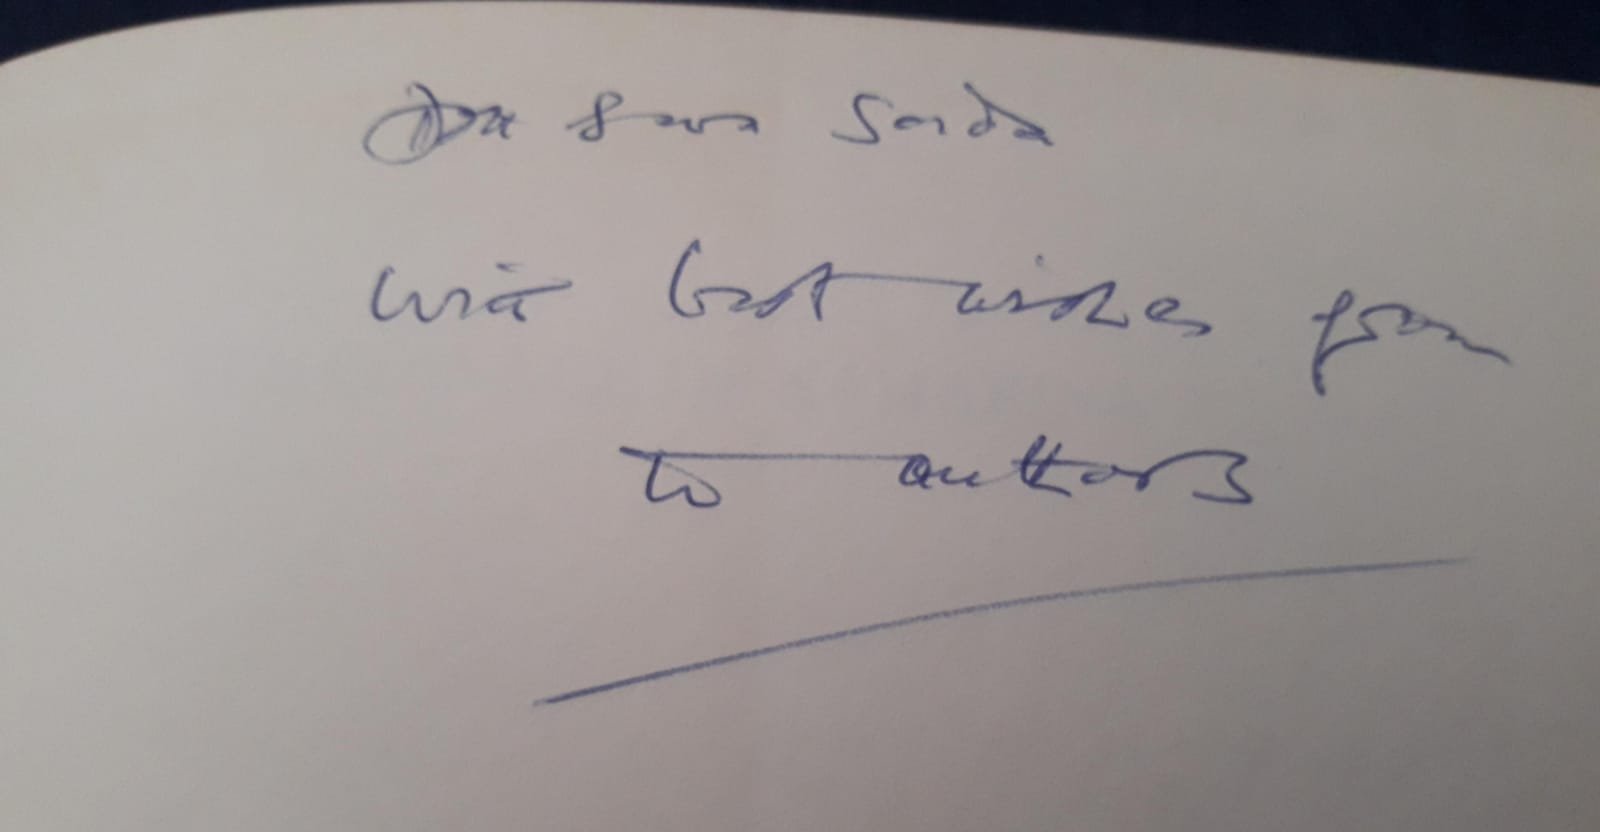 Sara Saida
with best wishes from
to authors